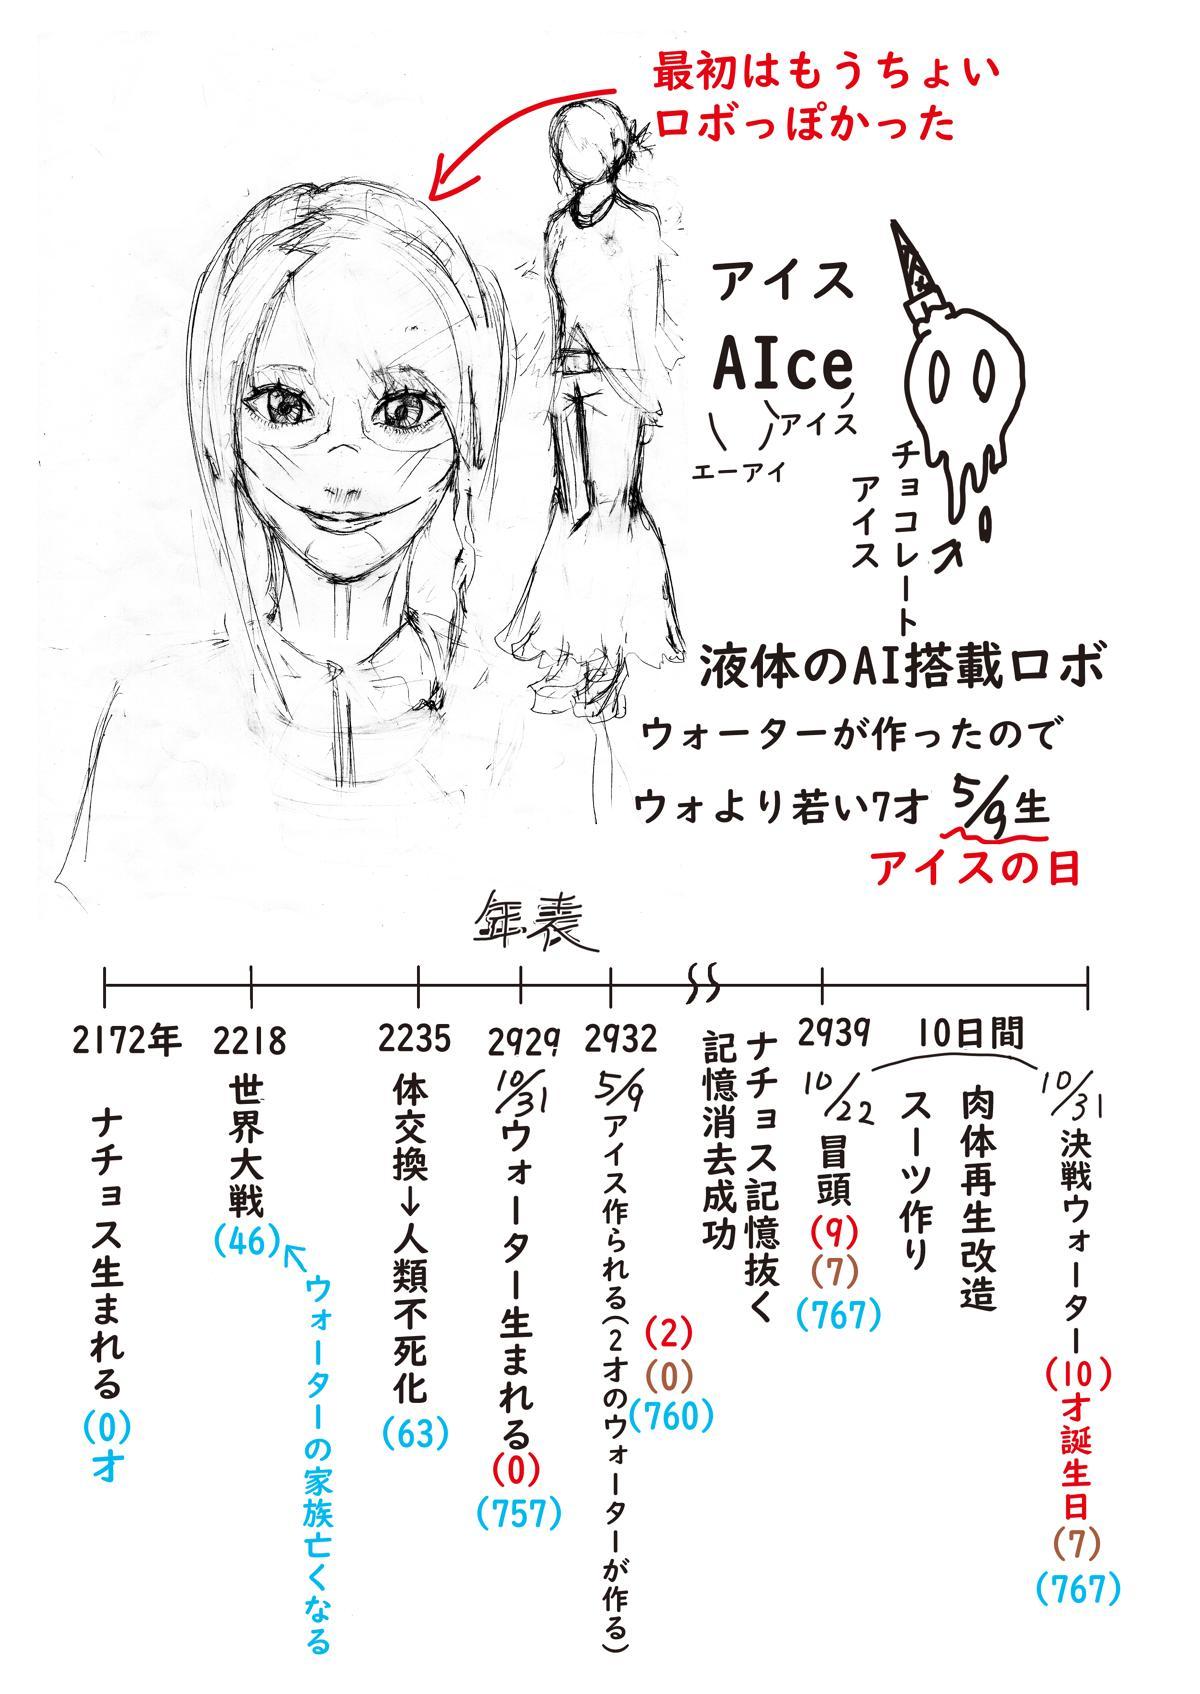 最初はもうちょい
ロボっぽかった
アイス
AIce
アイス
エーアイ
チョコレート
アイス
液体のAI搭載ロボ
ウォーターが作ったので
ウォより若い7才 5/9生
アイスの日
年表
2172年
ナチョス生まれる
(0)
才
2218
世界大戦
(46)
ウォーターの家族亡くなる
2235
体交換→人類不死化
(63)
2929
10/31
ウォーター生まれる
(0)
(757)
2932
5/9
アイス作られる(2才のウォーターが作る)
(2)
(0)
(760)
ナチョス記憶抜く
記憶消去成功
2939
10/22
冒頭
(9)
(7)
(767)
10日間
肉体再生改造
スーツ作り
10/31
決戦ウォーター
(10)
才誕生日
(7)
(767)